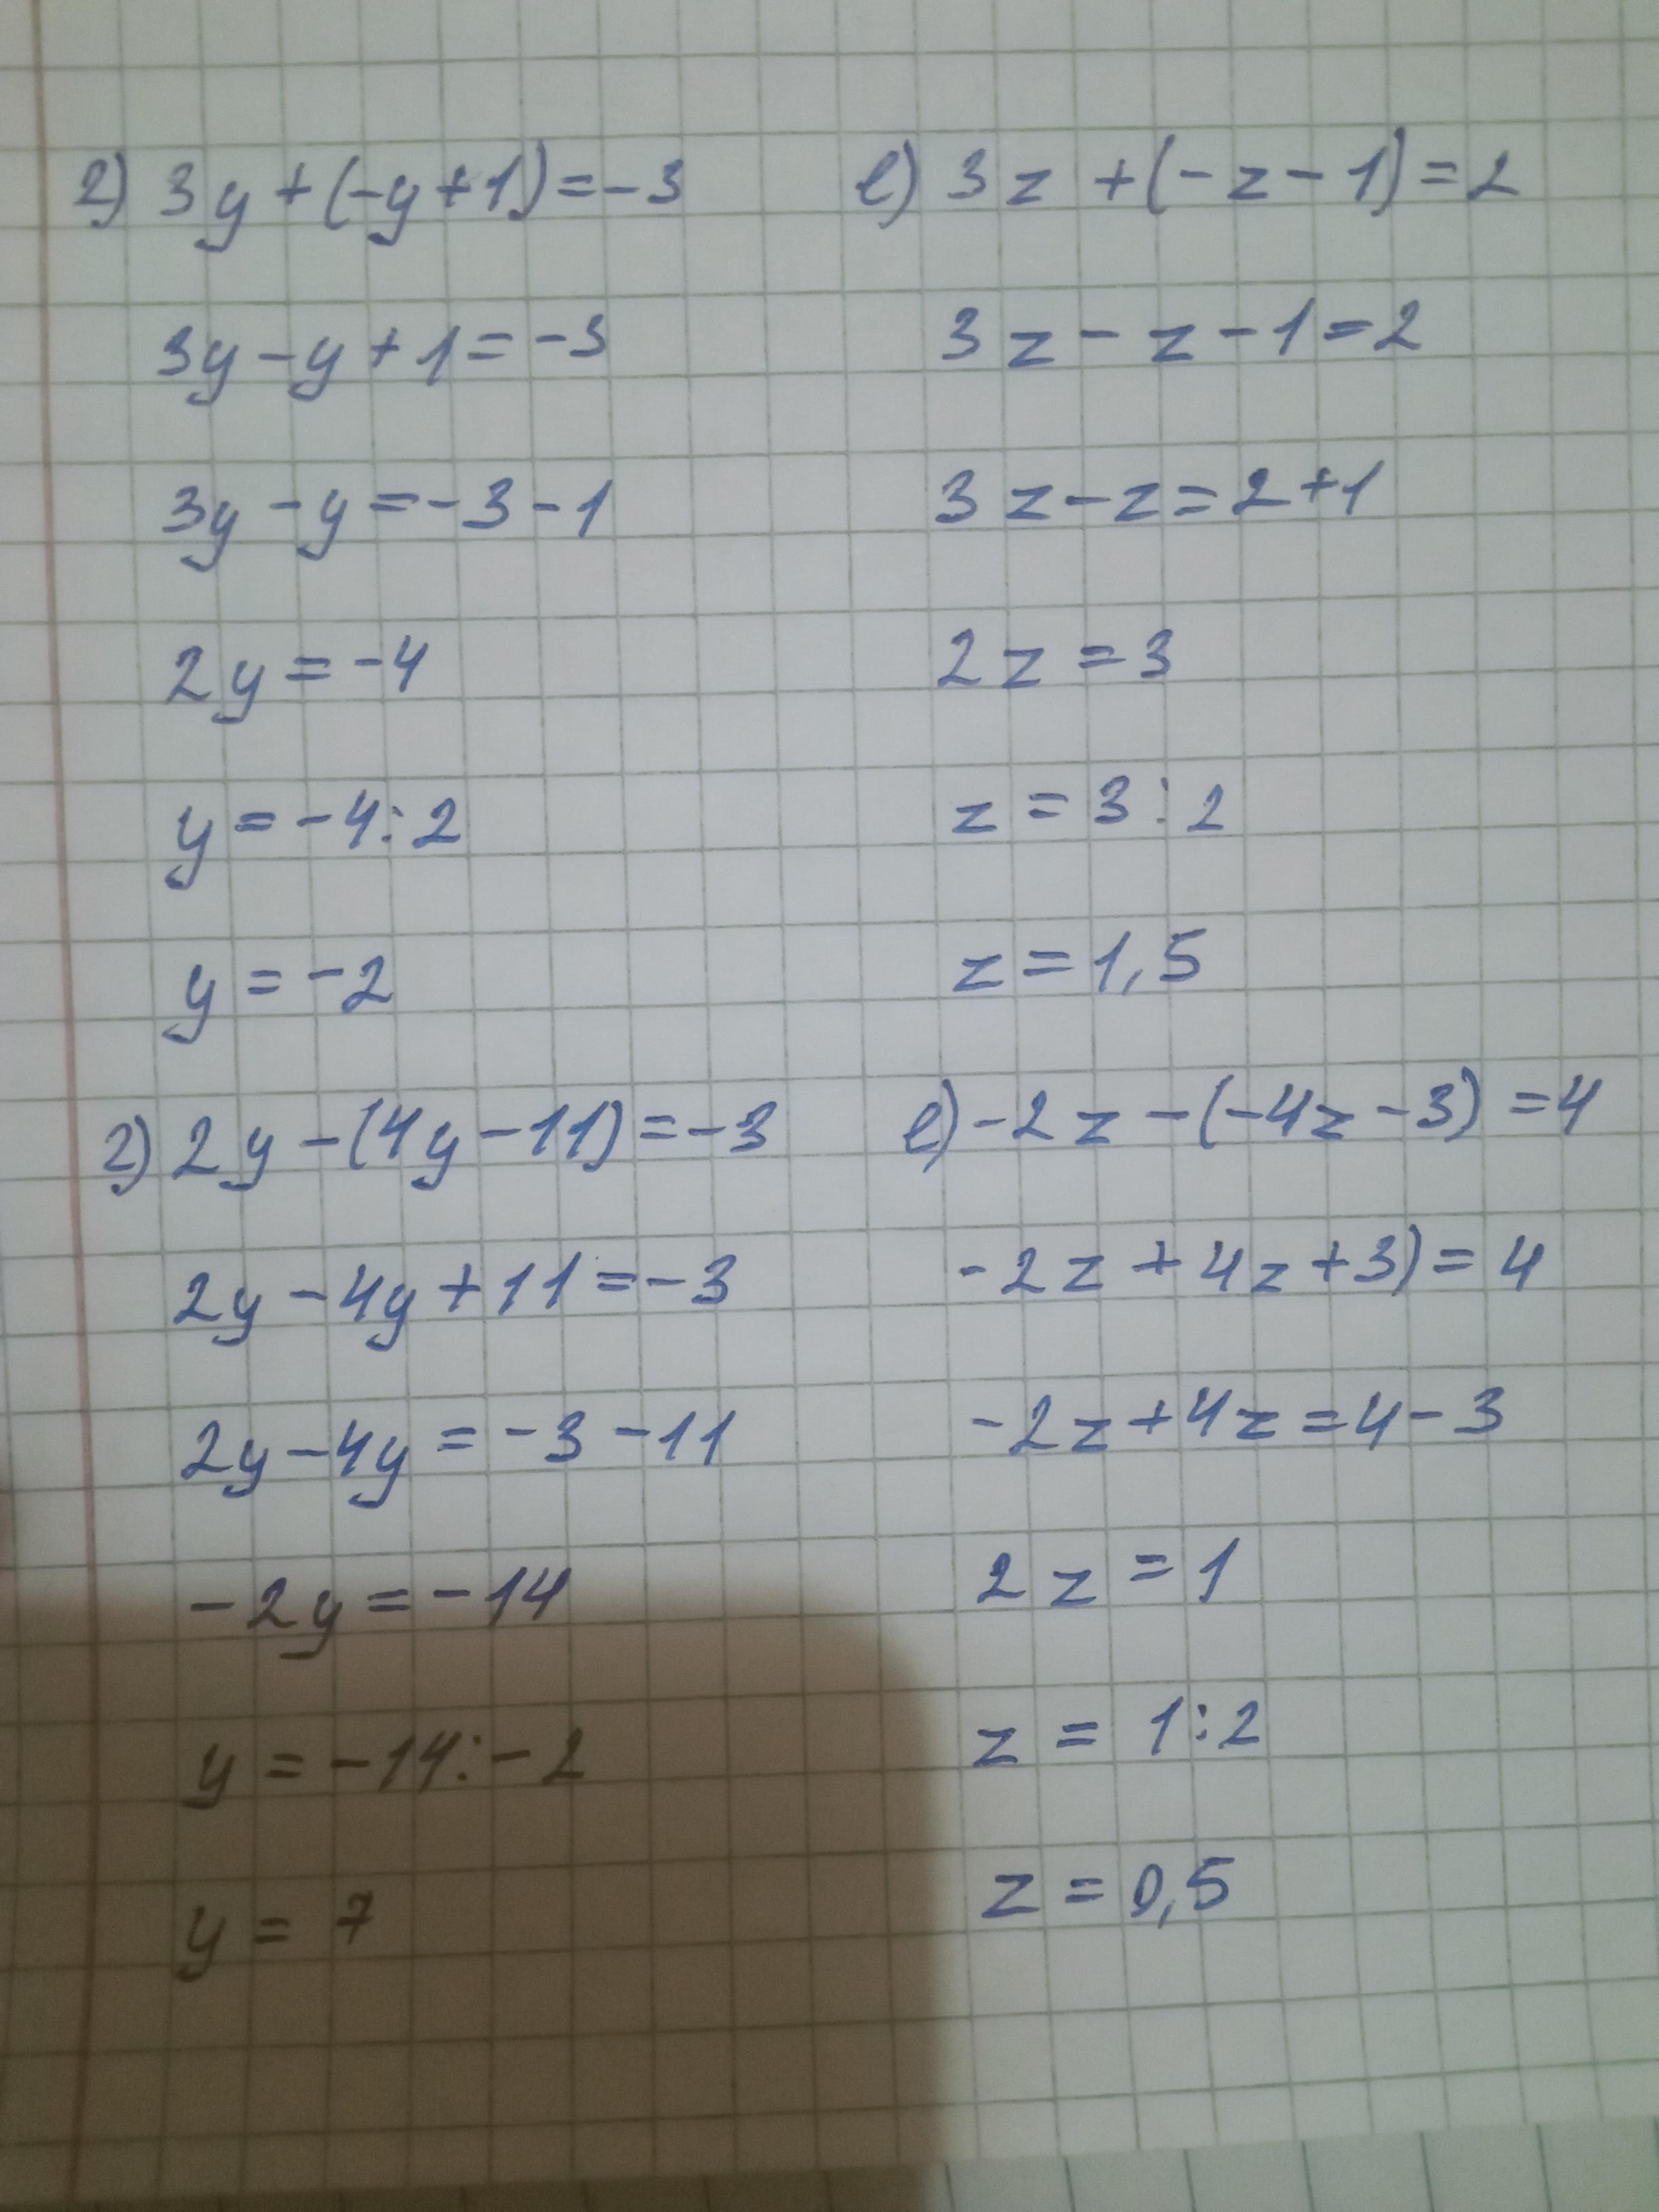 г) 3y + (-y + 1) = -3
3y - y + 1 = -3
3y - y = -3 - 1
2y = -4
y = -4 : 2
y = -2
е) 3z + (-z - 1) = 2
3z - z - 1 = 2
3z - z = 2 + 1
2z = 3
z = 3 : 2
z = 1,5
г) 2y - (4y - 11) = -3
2y - 4y + 11 = -3
2y - 4y = -3 - 11
-2y = -14
y = -14 : -2
y = 7
е) -2z - (-4z - 3) = 4
-2z + 4z + 3) = 4
-2z + 4z = 4 - 3
2z = 1
z = 1 : 2
z = 0,5